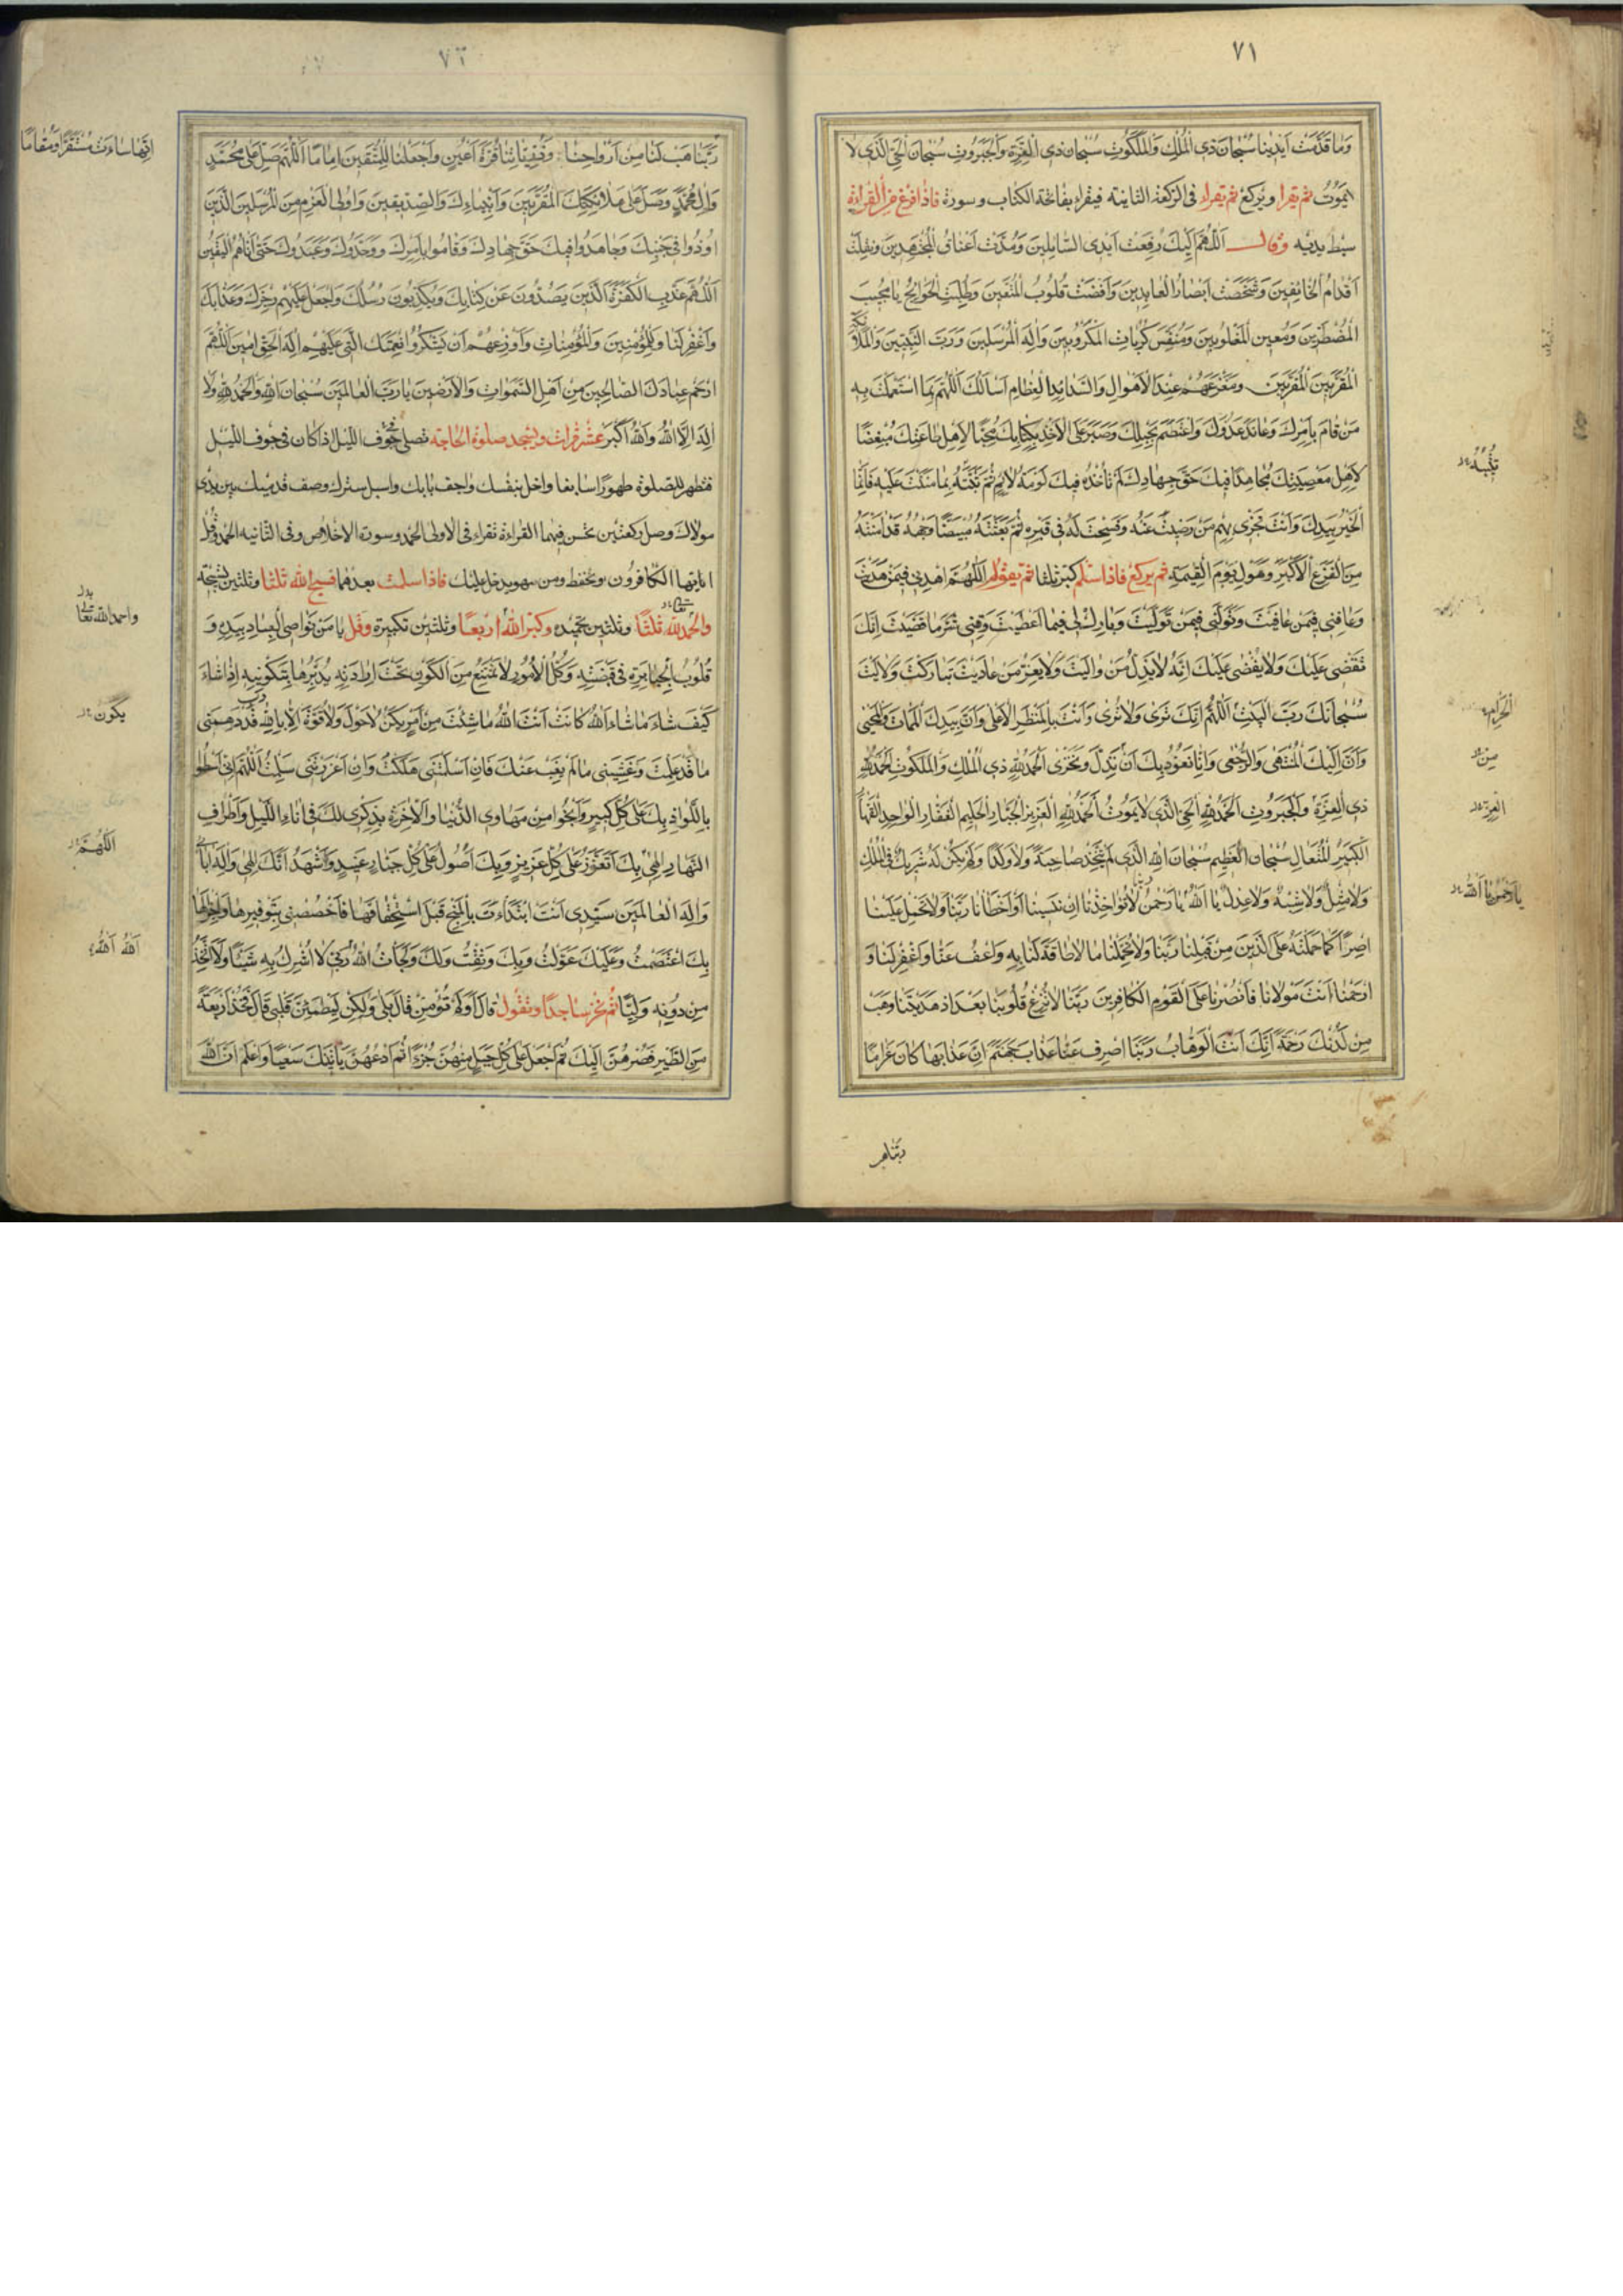 ٧١
وَمَا قَدَّمَتْ أَيْدِينَا سُبْحَانَ ذِي الْمُلْكِ وَالْمَلَكُوتِ سُبْحَانَ ذِي الْعِزَّةِ وَالْجَبَرُوتِ سُبْحَانَ الْحَيِّ الَّذِي لَا
يَمُوتُ ثم يقرا ويركع ثم يقراء في الركعة الثانية فيقراء بفاتحة الكتاب وسورة فاذا فرغ من القراءة
بسط يديه وقال اَللّٰهُمَّ اِلَيْكَ رُفِعَتْ اَيْدِي السَّائِلِينَ وَمُدَّتْ اَعْنَاقُ الْمُجْتَهِدِينَ وَنُقِلَتْ
اَقْدَامُ الْخَائِفِينَ وَشَخَصَتْ اَبْصَارُ الْعَابِدِينَ وَاَفْضَتْ قُلُوبُ الْمُتَّقِينَ وَطُلِبَتِ الْحَوَائِجُ يَا مُجِيبَ
الْمُضْطَرِّينَ وَمُعِينَ الْمَغْلُوبِينَ وَمُنَفِّسَ كُرُبَاتِ الْمَكْرُوبِينَ وَاِلٰهَ الْمُرْسَلِينَ وَرَبَّ النَّبِيِّينَ وَالْمَلَائِكَةِ
الْمُقَرَّبِينَ وَمَفْزَعَهُمْ عِنْدَ الْاَهْوَالِ وَالشَّدَائِدِ الْعِظَامِ اَسْاَلُكَ اللّٰهُمَّ بِمَا اسْتَعْمَلْتَ بِهِ
مَنْ قَامَ بِاَمْرِكَ وَعَانَدَ عَدُوَّكَ وَاعْتَصَمَ بِحَبْلِكَ وَصَبَرَ عَلَى الْاَخْذِ بِكِتَابِكَ مُحِبًّا لِاَهْلِ طَاعَتِكَ مُبْغِضًا
لِاَهْلِ مَعْصِيَتِكَ مُجَاهِدًا فِيكَ حَقَّ جِهَادِكَ لَمْ تَأْخُذْهُ فِيكَ لَوْمَةُ لَائِمٍ ثُمَّ ثَبَّتَّهُ بِمَا مَنَنْتَ عَلَيْهِ فَاِنَّمَا
الْخَيْرُ بِيَدِكَ وَاَنْتَ تَجْزِي بِهِ مَنْ رَضِيتَ عَنْهُ وَفَسَحْتَ لَهُ فِي قَبْرِهِ ثُمَّ بَعَثْتَهُ مُبْيَضًّا وَجْهُهُ قَدْ اٰمَنْتَهُ
مِنَ الْفَزَعِ الْاَكْبَرِ وَهَوْلِ يَوْمِ الْقِيٰمَةِ ثم يركع فاذا سلم كبر ثلثا ثم يقول اَللّٰهُمَّ اهْدِنِي فِيمَنْ هَدَيْتَ
وَعَافِنِي فِيمَنْ عَافَيْتَ وَتَوَلَّنِي فِيمَنْ تَوَلَّيْتَ وَبَارِكْ لِي فِيمَا اَعْطَيْتَ وَقِنِي شَرَّ مَا قَضَيْتَ اِنَّكَ
تَقْضِي عَلَيْكَ وَلَا يُقْضٰى عَلَيْكَ اِنَّهُ لَا يَذِلُّ مَنْ وَالَيْتَ وَلَا يَعِزُّ مَنْ عَادَيْتَ تَبَارَكْتَ وَتَعَالَيْتَ
سُبْحَانَكَ رَبَّ الْبَيْتِ اَللّٰهُمَّ اِنَّكَ تَرٰى وَلَا تُرٰى وَاَنْتَ بِالْمَنْظَرِ الْاَعْلٰى وَاَنَّ بِيَدِكَ الْمَمَاتَ وَالْمَحْيٰى
وَاَنَّ اِلَيْكَ الْمُنْتَهٰى وَالرُّجْعٰى وَاِنَّا نَعُوذُ بِكَ اَنْ نَذِلَّ وَنَخْزٰى اَلْحَمْدُ لِلّٰهِ ذِي الْمُلْكِ وَالْمَلَكُوتِ الْحَمْدُ لِلّٰهِ
ذِي الْعِزَّةِ وَالْجَبَرُوتِ اَلْحَمْدُ لِلّٰهِ الْحَيِّ الَّذِي لَا يَمُوتُ اَلْحَمْدُ لِلّٰهِ الْعَزِيزِ الْجَبَّارِ الْحَلِيمِ الْغَفَّارِ الْوَاحِدِ الْقَهَّارِ
الْكَبِيرِ الْمُتَعَالِ سُبْحَانَ الْعَظِيمِ سُبْحَانَ اللهِ الَّذِي لَمْ يَتَّخِذْ صَاحِبَةً وَلَا وَلَدًا وَلَمْ يَكُنْ لَهُ شَرِيكٌ فِي الْمُلْكِ
وَلَا مِثْلٌ وَلَا شِبْهٌ وَلَا عِدْلٌ يَا اَللهُ يَا رَحْمٰنُ رَبَّنَا لَا تُؤَاخِذْنَا اِنْ نَسِينَا اَوْ اَخْطَأْنَا رَبَّنَا وَلَا تَحْمِلْ عَلَيْنَا
اِصْرًا كَمَا حَمَلْتَهُ عَلَى الَّذِينَ مِنْ قَبْلِنَا رَبَّنَا وَلَا تُحَمِّلْنَا مَا لَا طَاقَةَ لَنَا بِهِ وَاعْفُ عَنَّا وَاغْفِرْ لَنَا وَ
ارْحَمْنَا اَنْتَ مَوْلَانَا فَانْصُرْنَا عَلَى الْقَوْمِ الْكَافِرِينَ رَبَّنَا لَا تُزِغْ قُلُوبَنَا بَعْدَ اِذْ هَدَيْتَنَا وَهَبْ
مِنْ لَدُنْكَ رَحْمَةً اِنَّكَ اَنْتَ الْوَهَّابُ رَبَّنَا اصْرِفْ عَنَّا عَذَابَ جَهَنَّمَ اِنَّ عَذَابَهَا كَانَ غَرَامًا
الْحَرَامِ
مِنْ
الْعِزَّةِ
يَا رَحْمٰنُ يَا اَللهُ
٧٢
رَبَّنَا هَبْ لَنَا مِنْ اَزْوَاجِنَا وَذُرِّيَّاتِنَا قُرَّةَ اَعْيُنٍ وَاجْعَلْنَا لِلْمُتَّقِينَ اِمَامًا اَللّٰهُمَّ صَلِّ عَلٰى مُحَمَّدٍ
وَاٰلِ مُحَمَّدٍ وَصَلِّ عَلٰى مَلَائِكَتِكَ الْمُقَرَّبِينَ وَاَنْبِيَائِكَ وَالصِّدِّيقِينَ وَاُولِي الْعَزْمِ مِنَ الْمُرْسَلِينَ الَّذِينَ
اُوذُوا فِي جَنْبِكَ وَجَاهَدُوا فِيكَ حَقَّ جِهَادِكَ وَقَامُوا بِاَمْرِكَ وَوَحَّدُوكَ وَعَبَدُوكَ حَتّٰى اَتَاهُمُ الْيَقِينُ
اَللّٰهُمَّ عَذِّبِ الْكَفَرَةَ الَّذِينَ يَصُدُّونَ عَنْ كِتَابِكَ وَيُكَذِّبُونَ رُسُلَكَ وَاجْعَلْ عَلَيْهِمْ رِجْزَكَ وَعَذَابَكَ
وَاغْفِرْ لَنَا وَلِلْمُؤْمِنِينَ وَالْمُؤْمِنَاتِ وَاَوْزِعْهُمْ اَنْ يَشْكُرُوا نِعْمَتَكَ الَّتِي عَلَيْهِمْ اِلٰهَ الْحَقِّ اٰمِينَ اَللّٰهُمَّ
ارْحَمْ عِبَادَكَ الصَّالِحِينَ مِنْ اَهْلِ السَّمٰوَاتِ وَالْاَرَضِينَ يَا رَبَّ الْعَالَمِينَ سُبْحَانَ اللهِ وَالْحَمْدُ لِلّٰهِ وَلَا
اِلٰهَ اِلَّا اللهُ وَاللهُ اَكْبَرُ عشر مرات ويسجد صلوة الحاجة تصلى جوف الليل اذا كان في جوف الليل
فتطهر للصلوة طهورا سابغا واخل بنفسك واجف بابك واسبل سترك وصف قدميك بين يدى
مولاك وصل ركعتين تحسن فيهما القراءة تقراء في الاولى الحمد وسورة الاخلاص وفي الثانيه الحمد وقل
ايايها الكافرون وتحفظ من سهو يدخل عليك فاذا سلمت بعدهما فسبح الله ثلثا وثلثين تسبيحة
والحمد لله ثلثا وثلثين تحميده وكبر الله اربعا وثلثين تكبيرة وقل يَا مَنْ نَوَاصِي الْعِبَادِ بِيَدِهِ وَ
قُلُوبُ الْجَبَابِرَةِ فِي قَبْضَتِهِ وَكُلُّ الْاُمُورِ لَا يَمْتَنِعُ مِنَ الْكَوْنِ تَحْتَ اِرَادَتِهِ يُدَبِّرُهَا بِتَكْوِينِهِ اِذَا شَاءَ
كَيْفَ شَاءَ مَا شَاءَ اللهُ كَانَ اَنْتَ اللهُ مَا شِئْتَ مِنْ اَمْرٍ يَكُنْ لَا حَوْلَ وَلَا قُوَّةَ اِلَّا بِاللهِ رَبِّ قَدْ دَهِمَنِي
مَا قَدْ عَلِمْتَ وَغَشِيَنِي مَا لَمْ يَغِبْ عَنْكَ فَاِنْ اَسْلَمْتَنِي هَلَكْتُ وَاِنْ اَعْزَزْتَنِي سَلِمْتُ اَللّٰهُمَّ اِنِّي اَسْطُو
بِاللِّوَاذِ بِكَ عَلٰى كُلِّ كَبِيرٍ وَاَنْجُو مِنْ مَهَاوِي الدُّنْيَا وَالْاٰخِرَةِ بِذِكْرِي لَكَ فِي اٰنَاءِ اللَّيْلِ وَاَطْرَافِ
النَّهَارِ اِلٰهِي بِكَ اَتَعَزَّزُ عَلٰى كُلِّ عَزِيزٍ وَبِكَ اَصُولُ عَلٰى كُلِّ جَبَّارٍ عَنِيدٍ وَاَشْهَدُ اَنَّكَ اِلٰهِي وَاِلٰهُ اٰبَائِي
وَاِلٰهُ الْعَالَمِينَ سَيِّدِي اَنْتَ ابْتَدَأْتَ بِالْمِنَحِ قَبْلَ اسْتِحْقَاقِهَا فَاخْصُصْنِي بِتَوْفِيرِهَا وَاِجْزَالِهَا
بِكَ اعْتَصَمْتُ وَعَلَيْكَ عَوَّلْتُ وَبِكَ وَثِقْتُ وَاِلَيْكَ لَجَأْتُ اَللهُ رَبِّي لَا اُشْرِكُ بِهِ شَيْئًا وَلَا اَتَّخِذُ
مِنْ دُونِهِ وَلِيًّا ثم تخر ساجدا وتقول قَالَ اَوَلَمْ تُؤْمِنْ قَالَ بَلٰى وَلٰكِنْ لِيَطْمَئِنَّ قَلْبِي قَالَ فَخُذْ اَرْبَعَةً
مِنَ الطَّيْرِ فَصُرْهُنَّ اِلَيْكَ ثُمَّ اجْعَلْ عَلٰى كُلِّ جَبَلٍ مِنْهُنَّ جُزْءًا ثُمَّ ادْعُهُنَّ يَأْتِينَكَ سَعْيًا وَاعْلَمْ اَنَّ اللهَ
اِنَّهَا سَاءَتْ مُسْتَقَرًّا وَمُقَامًا
واحمد الله تعالى
يَكُونُ
اَللّٰهُمَّ
اَللهُ اَللهُ